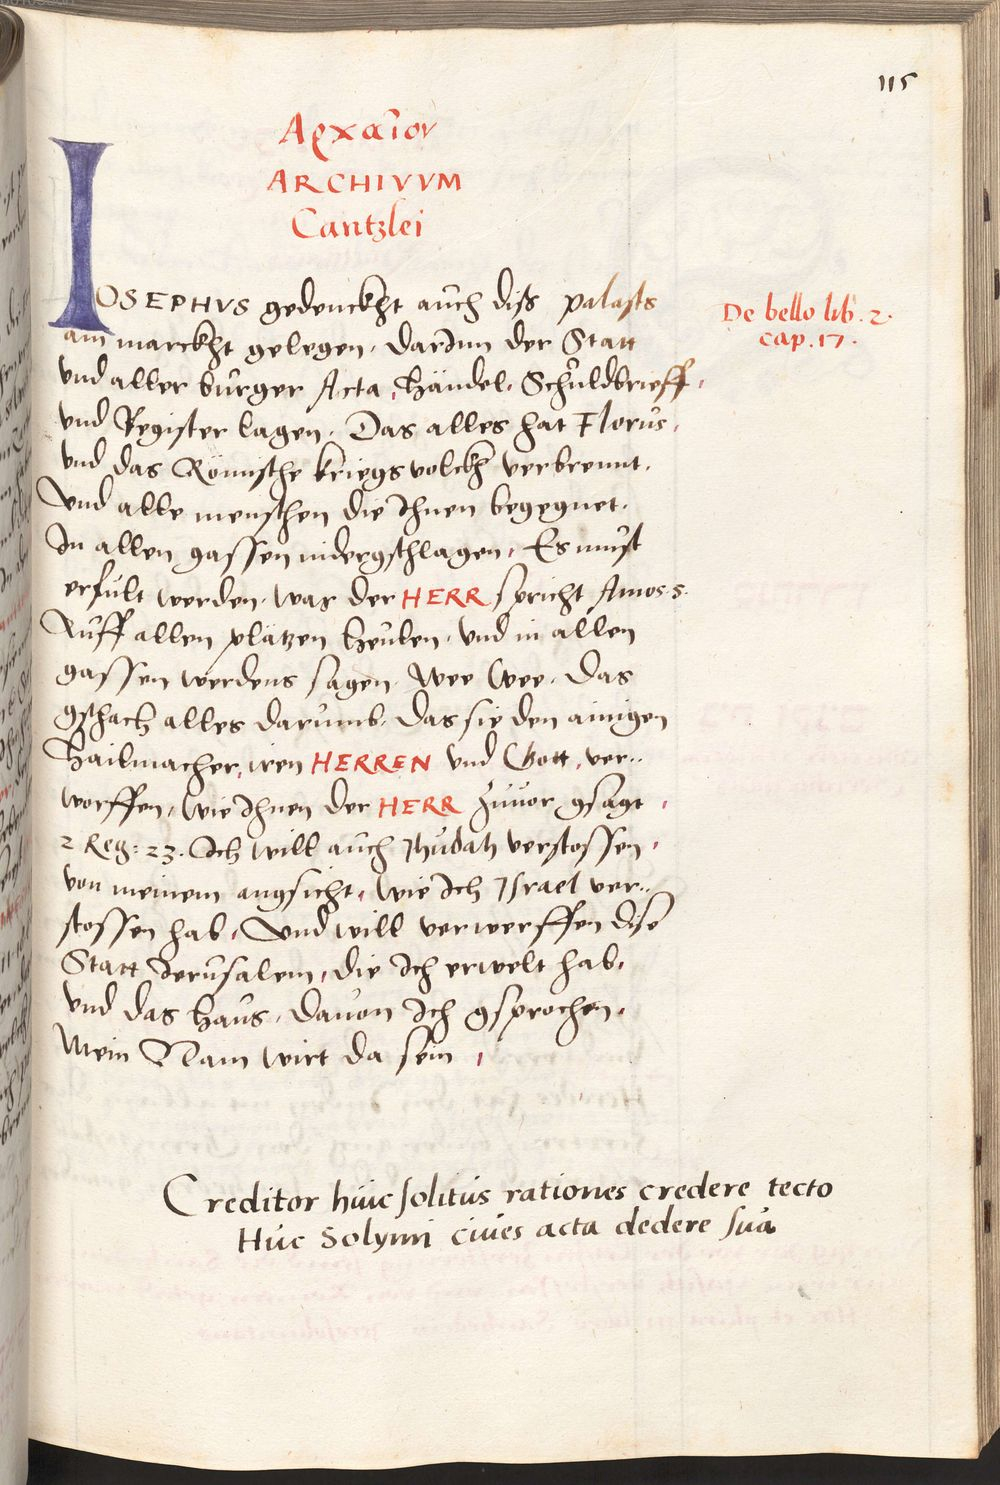 115
Αρχαῖον
ARCHIVVM
Cantzlei
IOSEPHVS gedenckht auch diss palasts
am marckht gelegen, darinn der Statt
vnd aller burger Acta, Händel, Schuldbrieff,
vnd Register lagen. Das alles hat Florus,
vnd das Römische kriegsvolckh verbrennt,
Vnd alle menschen die Ihnen begegnet,
In allen gassen nidergschlagen. Es must
erfült werden, was der HERR spricht Amos 5.
Auff allen plätzen heulen, vnd in allen
gassen werdens sagen, Wee Wee. Das
gschach alles darumb, das sie den ainigen
Hailmacher, iren HERREN vnd Gott, ver..
worffen, Wie Ihnen der HERR zuuor gsagt,
2 Reg: 23. Ich will auch Jhudah verstossen,
von meinem angsicht, wie Ich Israel ver..
stossen hab, Vnd will verwerffen dise
Statt Jerusalem, die Ich erwelt hab,
vnd das Haus, dauon Ich gsprochen,
Mein Nam wirt da sein,
De bello lib. 2.
cap. 17.
Creditor huic solitus rationes credere tecto
Huc Solymi ciues acta dedere sua